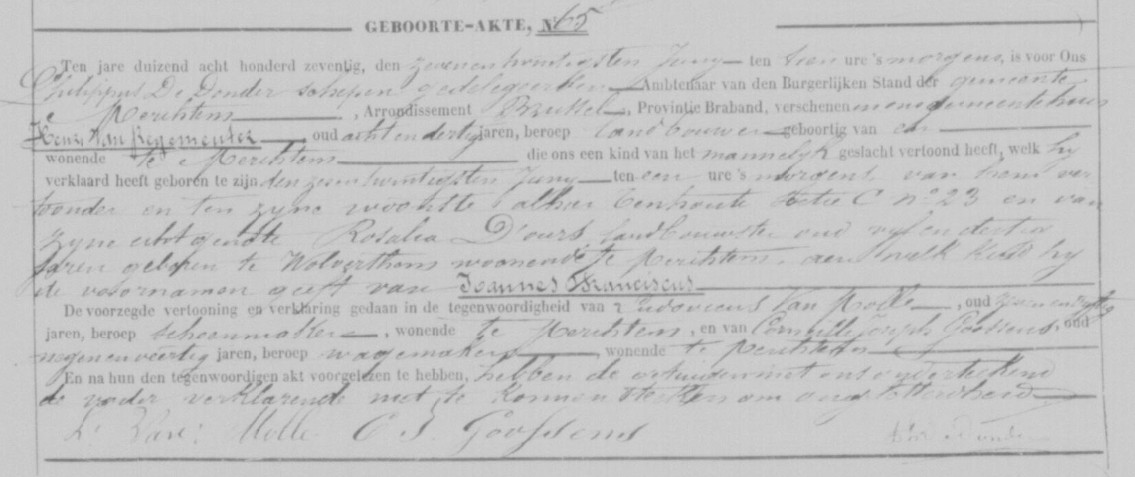 GEBOORTE-AKTE, N° 65
Ten jare duizend acht honderd zeventig, den zevenentwintigsten Juny ten tien ure 's morgens, is voor Ons
Philippus De Donder schepen gedelegeerden Ambtenaar van den Burgerlijken Stand der gemeente
Merchtem, Arrondissement Brussel, Provintie Braband, verschenen in ons gemeentehuis
Henri Van Regementer oud acht en dertig jaren, beroep landbouwer geboortig van en
wonende te Merchtem die ons een kind van het mannelyk geslacht vertoond heeft, welk hy
verklaard heeft geboren te zijn den twintigsten Juny ten een ure 's morgens van hem ver
toonder en ten zyne woonste alhier sectie C n° 23 en van
zyne echtgenote Rosalia D'ours landbouwster oud vyf en dertig
jaren geboren te Wolverthem woonende te Merchtem, aen welk kind hy
de voornamen geeft van Joannes Franciscus
De voorzegde vertooning en verklaring gedaan in de tegenwoordigheid van Ludovicus Van Molle, oud
jaren, beroep schoenmaker, wonende te Merchtem, en van Cornille Joseph Goossens, oud
negen en veertig jaren, beroep wagemaker, wonende te Merchtem
En na hun den tegenwoordigen akt voorgelezen te hebben, hebben de getuigen met ons onderteekend
de vader verklarende niet te konnen teeken om ongeletterdheid
L. Van Molle C J Goossens